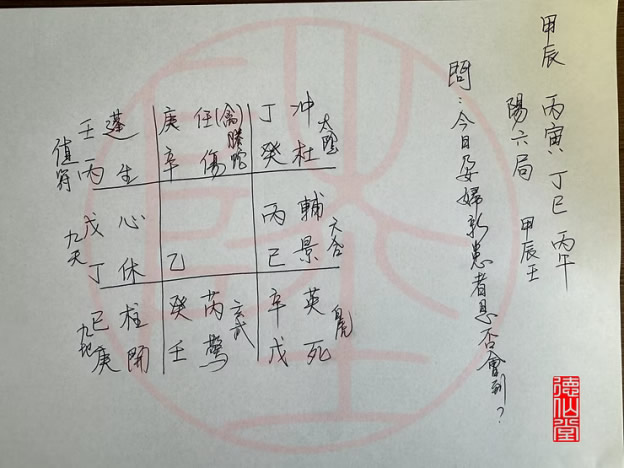 甲辰 丙寅 丁巳 丙午
陽六局 甲辰壬
問：今日孕婦新患者是否會到？
壬 蓬 值符
丙 生
庚 任(禽) 螣蛇
辛 傷
丁 冲 太陰
癸 杜
戊 心 九天
丁 休
乙
丙 輔 六合
己 景
己 柱 九地
庚 開
癸 芮 玄武
壬 驚
辛 英 白虎
戊 死
德仙堂